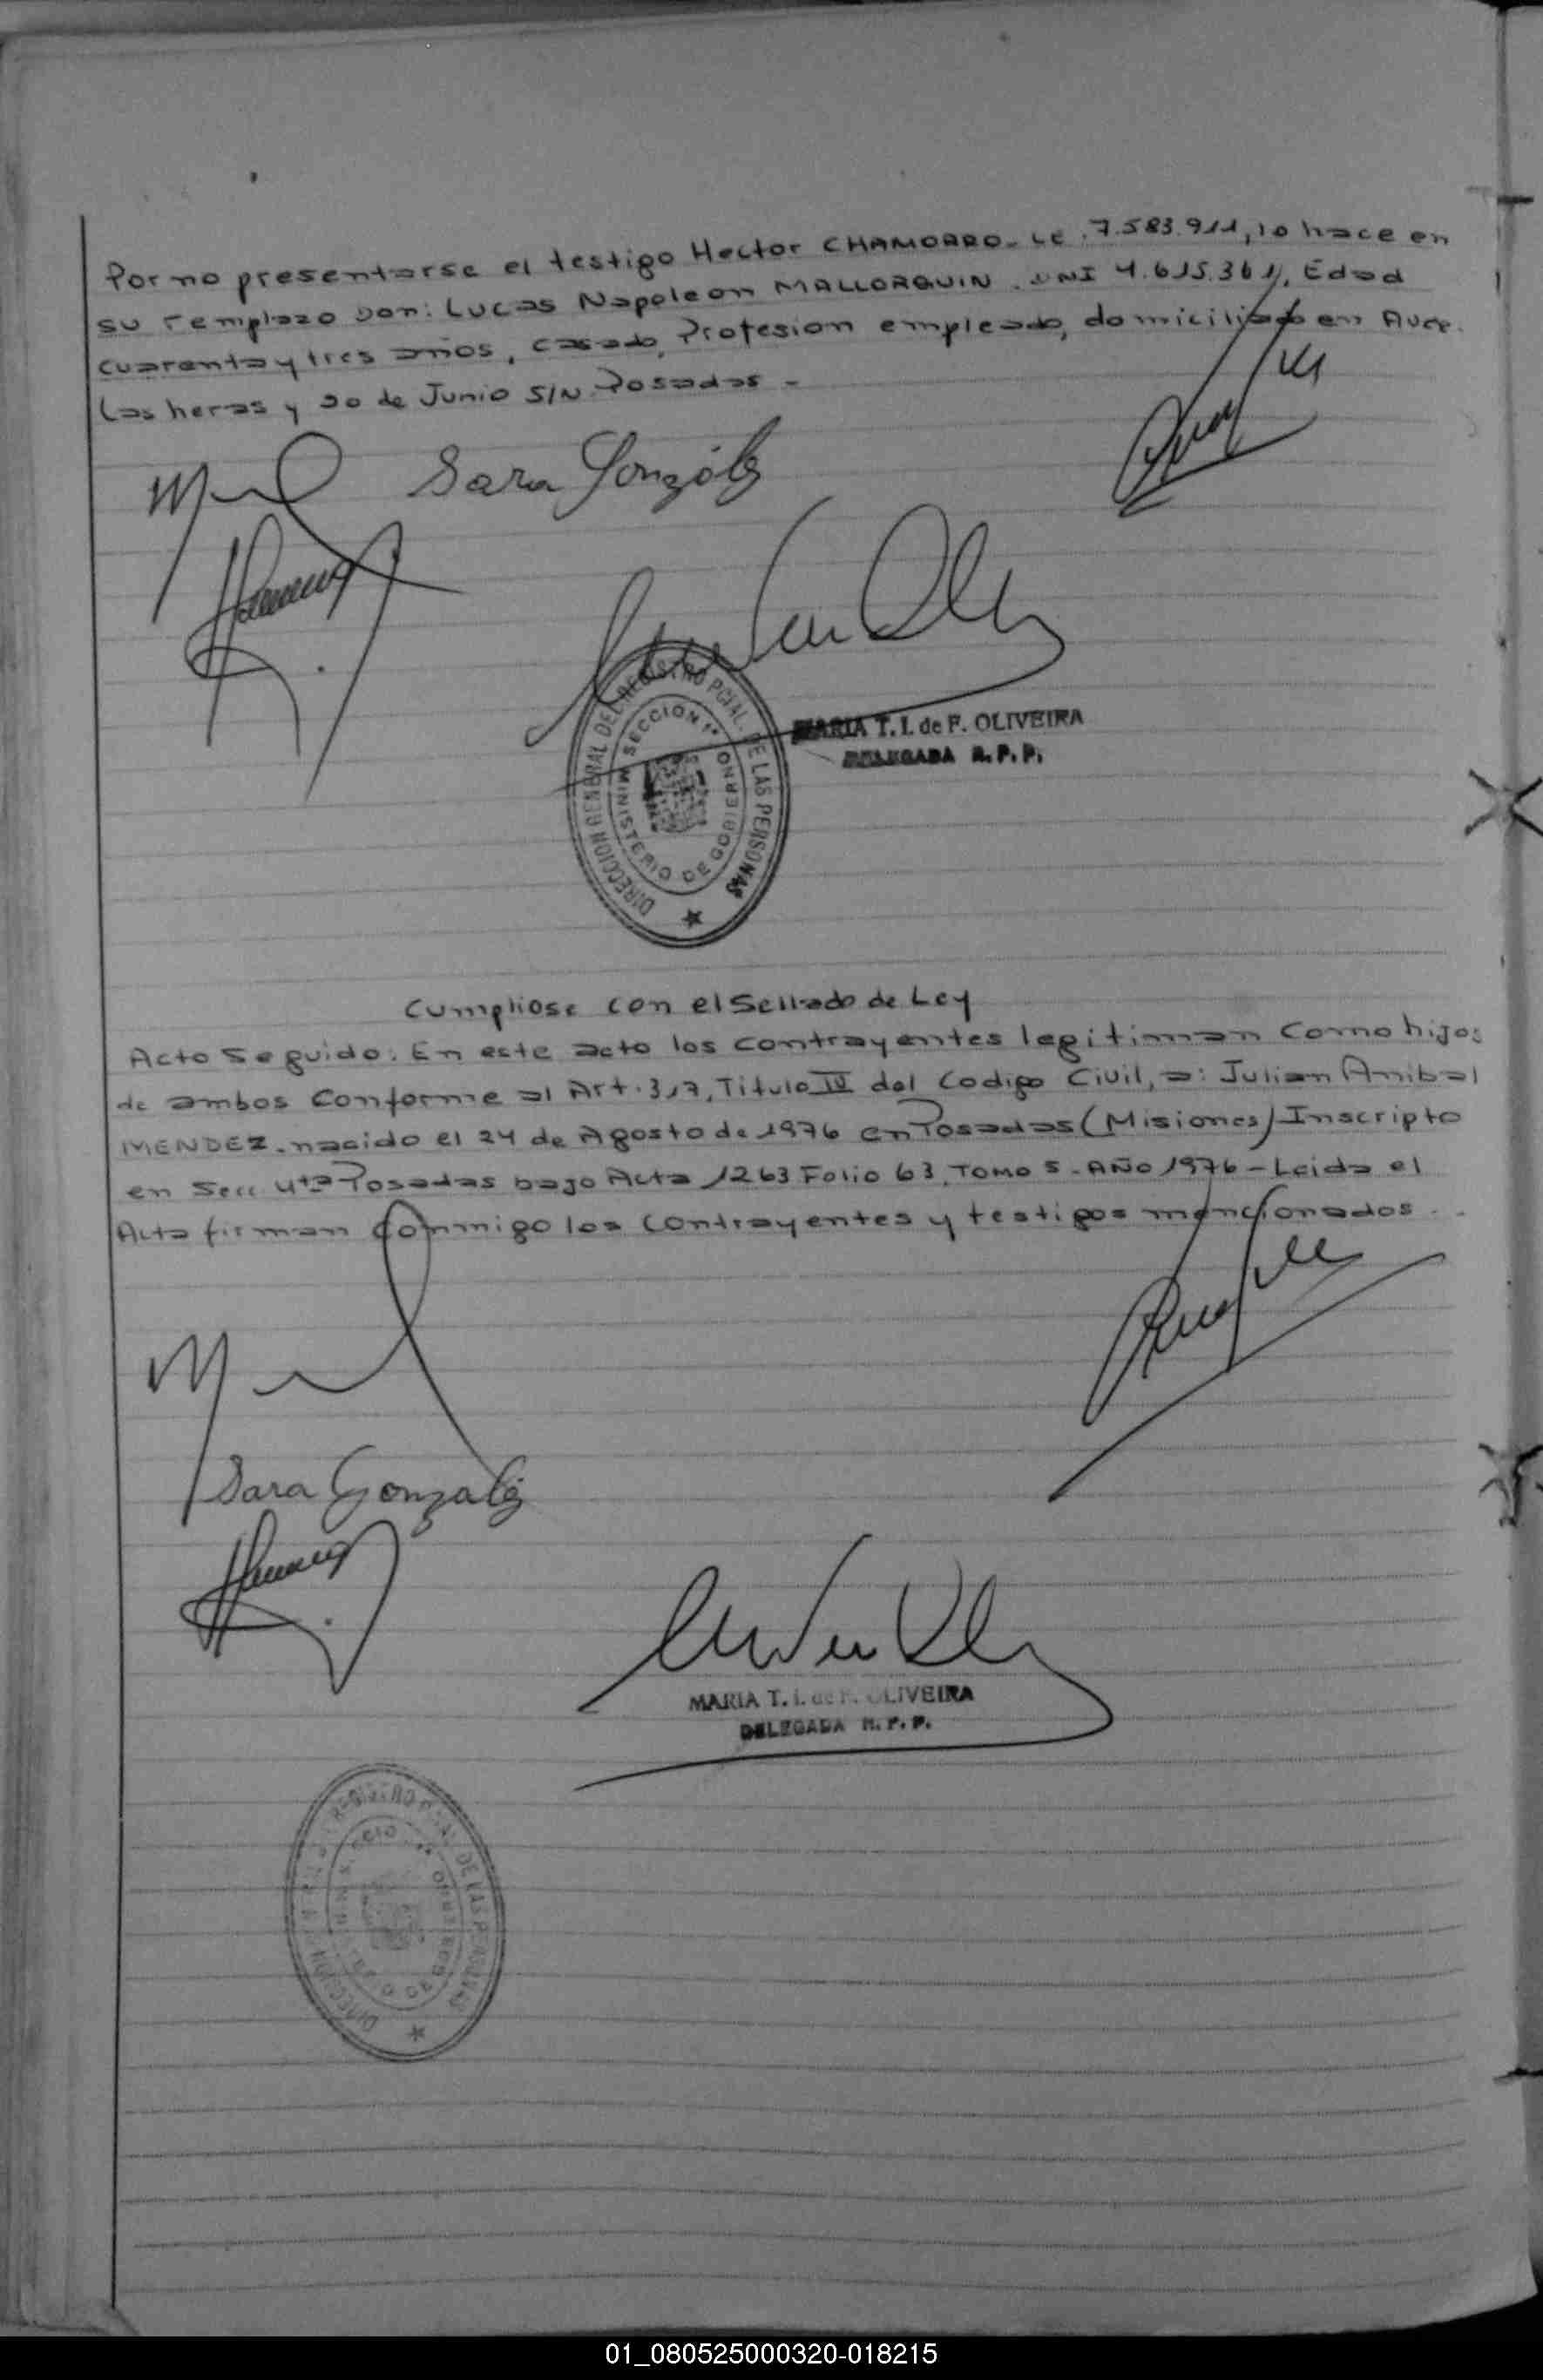 Por no presentarse el testigo Hector CHAMORRO - LE .7.583.911, lo hace en
su remplazo Don: Lucas Napoleon MALLORQUIN . DNI 4.615.361, Edad
cuarenta y tres años, casado, Profesion empleado, domiciliado en Avda.
Las heras y 20 de Junio S/N. Posadas -
Sara González
DIRECCION GENERAL DEL REGISTRO PCIAL. DE LAS PERSONAS
SECCION 1ª
MINISTERIO DE GOBIERNO
MARIA T. I. de F. OLIVEIRA
DELEGADA R. P. P.
Cumpliose con el Sellado de Ley
Acto Seguido: En este acto los contrayentes legitiman como hijos
de ambos Conforme al Art. 317, Titulo IV del Codigo Civil, a: Julian Anibal
MENDEZ. nacido el 24 de Agosto de 1976 en Posadas (Misiones) Inscripto
en Secc 4ta Posadas bajo Acta 1263 Folio 63, TOMO 5 - AÑO 1976 - Leida el
Acta firman conmigo los Contrayentes y testigos mencionados . .
Sara González
MARIA T. I. de F. OLIVEIRA
DELEGADA R. P. P.
DIRECCION REGISTRO PCIAL. DE LAS PERSONAS
01_080525000320-018215